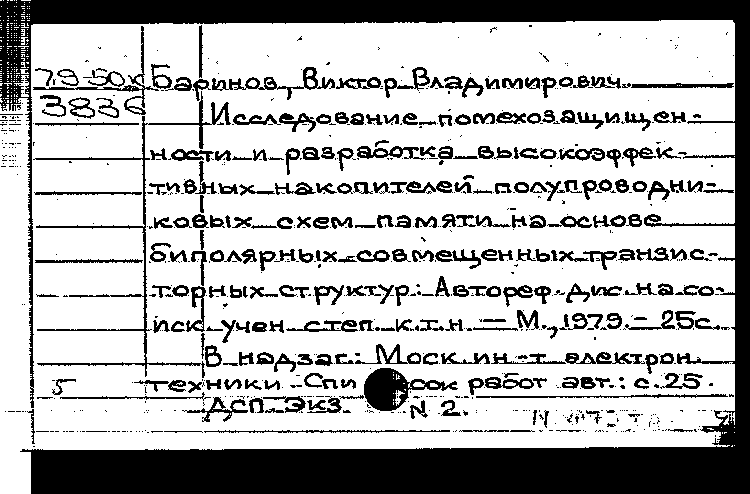 79-50к Баринов, Виктор Владимирович.
3836 Исследование помехозащищен-
ности и разработка высокоэффек-
тивных накопителей полупроводни-
ковых схем памяти на основе
биполярных совмещенных транзис-
торных структур: Автореф. дис. на со-
иск. учен. степ. к.т.н. — М., 1979. - 25с.
В надзаг.: Моск. ин-т электрон.
5 техники. Список работ авт.: с.25.
ДСП. Экз. N 2.